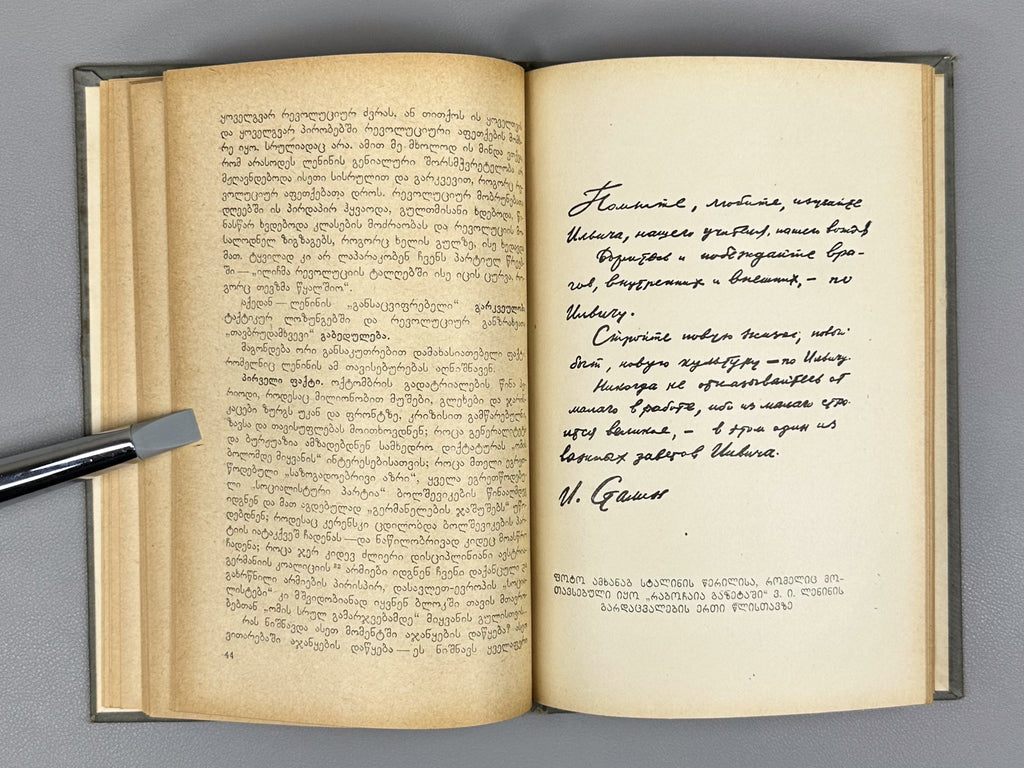 ყოველგვარ რევოლუციურ ძვრას, ან თითქოს ის ყოველთვის
და ყოველგვარ პირობებში რევოლუციური აფეთქების მომხ-
რე იყო. სრულიადაც არა. ამით მე მხოლოდ ის მინდა
რომ არასოდეს ლენინის გენიალური შორსმჭვრეტელობა
მჟღავნდებოდა ისეთი სისრულით და გარკვევით, როგორც რე-
ვოლუციურ აფეთქებათა დროს. რევოლუციურ მობრუნებათა
დღეებში ის პირდაპირ ჰყვაოდა, გულთმისანი ხდებოდა, წი-
ნასწარ ხვდებოდა კლასების მოძრაობას და რევოლუციის მო-
სალოდნელ ზიგზაგებს, როგორც ხელის გულზე, ისე ხედავდა
მათ. ტყვილად კი არ ლაპარაკობენ ჩვენს პარტიულ წრეებ-
ში — „ილიჩმა რევოლუციის ტალღებში ისე იცის ცურვა, რო-
გორც თევზმა წყალშიო“.
აქედან — ლენინის „განსაცვიფრებელი“ გარკვეულობა
ტაქტიკურ ლოზუნგებში და რევოლუციურ განზრახვათა
„თავბრუდამხვევი“ გაბედულება.
მაგონდება ორი განსაკუთრებით დამახასიათებელი ფაქტი,
რომელნიც ლენინის ამ თავისებურებას აღნიშნავენ.
პირველი ფაქტი. ოქტომბრის გადატრიალების წინა პე-
რიოდი, როდესაც მილიონობით მუშები, გლეხები და ჯარის-
კაცები ზურგს უკან და ფრონტზე, კრიზისით გამწარებულნი,
ზავსა და თავისუფლებას მოითხოვდნენ; როცა გენერალიტეტი
და ბურჟუაზია ამზადებდნენ სამხედრო დიქტატურას „ომის
ბოლომდე მიყვანის“ ინტერესებისათვის; როცა მთელი ეგრეთ-
წოდებული „საზოგადოებრივი აზრი“, ყველა ეგრეთწოდებუ-
ლი „სოციალისტური პარტია“ ბოლშევიკების წინააღმდეგ
იდგნენ და მათ აგდებულად „გერმანელების ჯაშუშებს“ უწო-
დებდნენ; როდესაც კერენსკი ცდილობდა ბოლშევიკების პარ-
ტიის იატაკქვეშ ჩადენას — და ნაწილობრივად კიდეც მოასწრო
ჩადენა; როცა ჯერ კიდევ ძლიერი დისციპლინიანი ავსტრია-
გერმანიის კოალიციის ³² არმიები იდგნენ ჩვენი დაქანცული და
გახრწნილი არმიების პირისპირ, დასავლეთ-ევროპის „სოცია-
ლისტები“ კი მშვიდობიანად იყვნენ ბლოკში თავის მთავრო-
ბებთან „ომის სრულ გამარჯვებამდე“ მიყვანის გულისთვის...
რას ნიშნავდა ასეთ მომენტში აჯანყების დაწყება? ასეთ
ვითარებაში აჯანყების დაწყება — ეს ნიშნავს ყველაფრის
44
Помните, любите, изучайте
Ильича, нашего учителя, нашего вождя.
Боритесь и побеждайте вра-
гов, внутренних и внешних, – по
Ильичу.
Стройте новую жизнь, новый
быт, новую культуру – по Ильичу.
Никогда не отказывайтесь от
малого в работе, ибо из малого стро-
ится великое, – в этом один из
важных заветов Ильича.
И. Сталин
ფოტო ამხანაგ სტალინის წერილისა, რომელიც მო-
თავსებული იყო „რაბოჩაია გაზეტაში“ ვ. ი. ლენინის
გარდაცვალების ერთი წლისთავზე